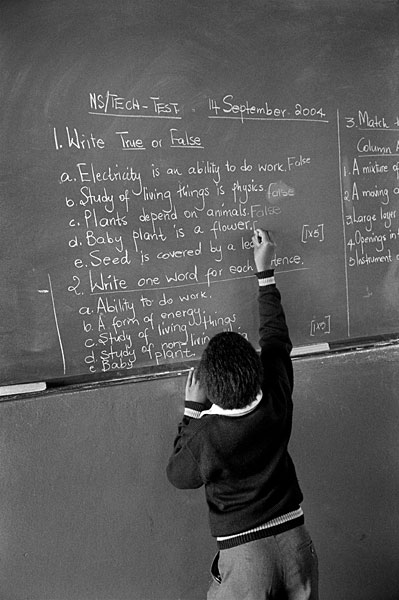 NS/TECH-TEST 14 September. 2004
1. Write True or False
a. Electricity is an ability to do work. False
b. Study of living things is physics. False
c. Plants depend on animals. False
d. Baby plant is a flower. F
e. Seed is covered by a [1x5]
2. Write one word for each
a. Ability to do work.
b. A form of energy.
c. Study of living things
d. study of non-living
e Baby plant.
3. Match
Column A
1. A mixture of
2. A moving
3. Large layer
4. Openings in
5. Instrument